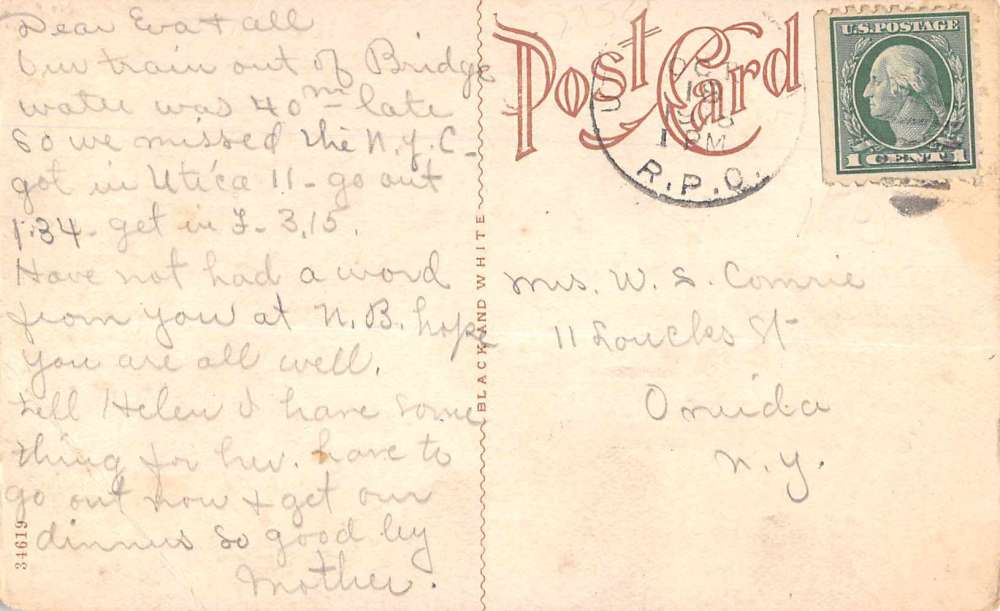 Dear Eva + all
Our train out of Bridge
water was 40m late
So we missed the N.Y.C.
got in Utica 11 - go out
1:34 - get in F - 3,15.
Have not had a word
from you at N.B. hope
you are all well.
Tell Helen I have some
thing for her. have to
go out now + get our
dinners so good by
Mother.
34619
BLACK AND WHITE
Post Card
OCT
19
1 PM
R.P.O.
U.S. POSTAGE
1 CENT 1
Mrs. W. S. Comrie
11 Loucks St
Oneida
N.Y.